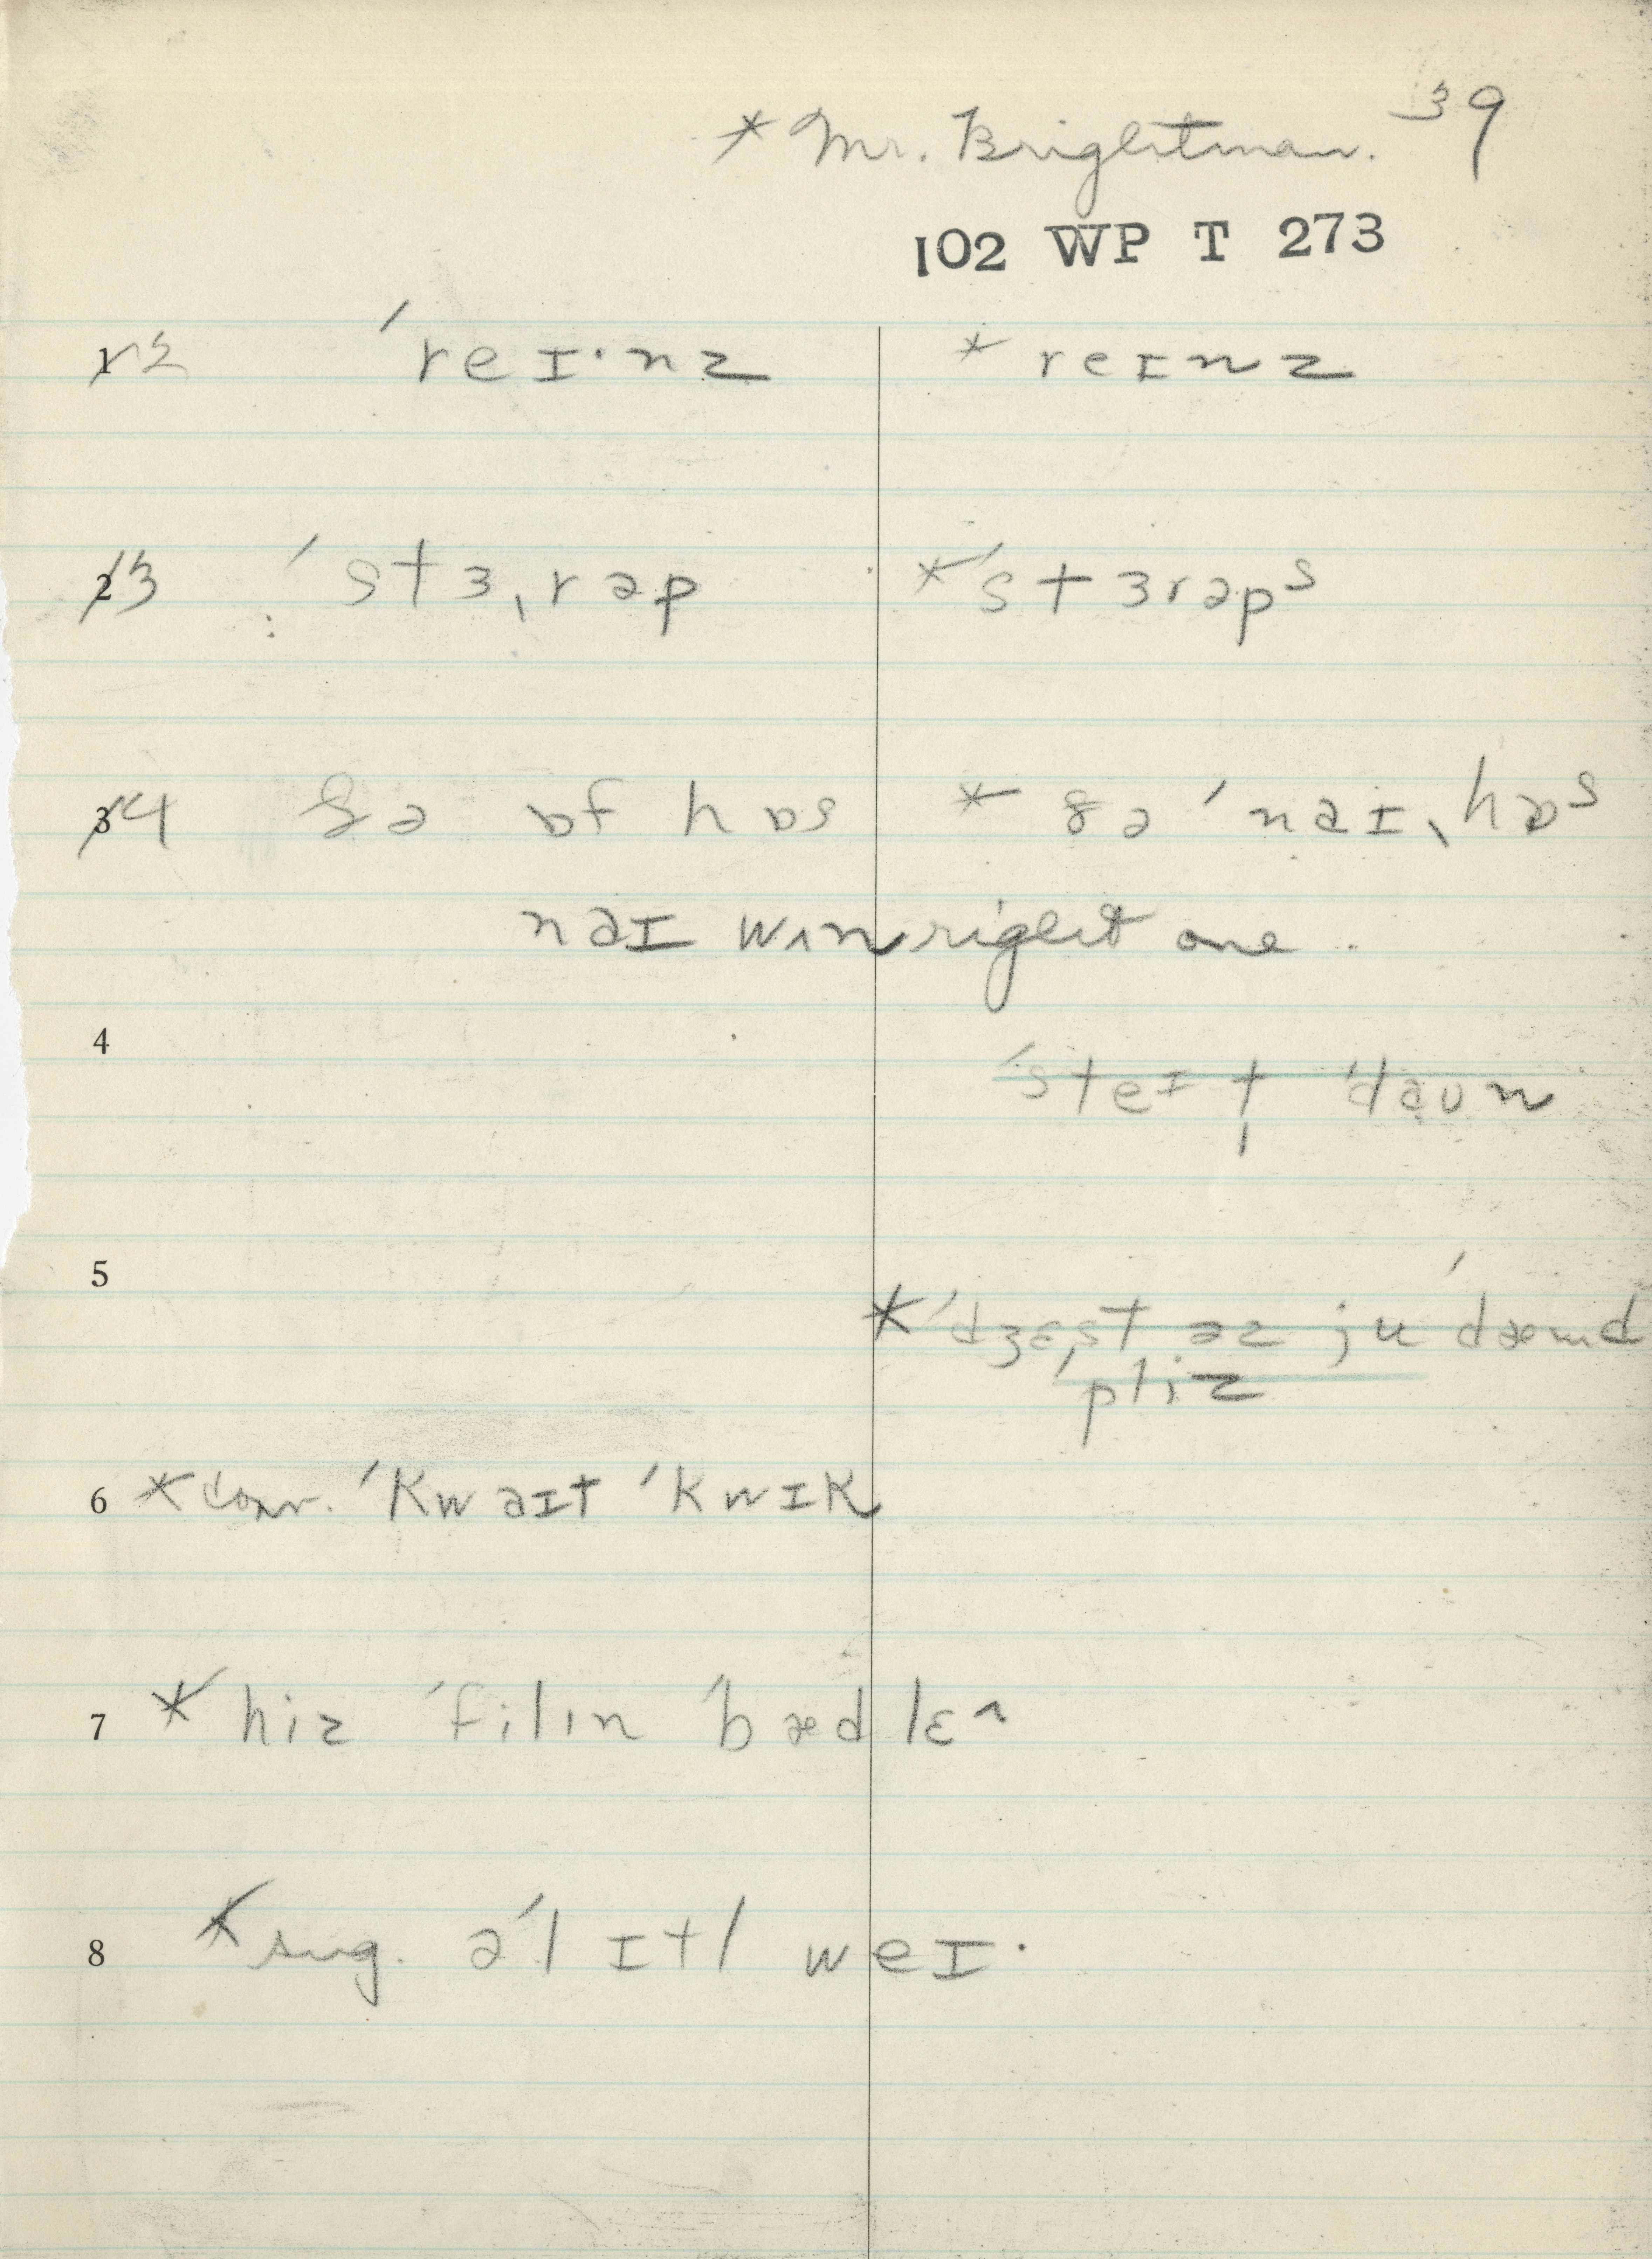 * Mr. Brightman. 39
102 WP T 273
12 ˈreɪ·nz * reɪnz
13 ˈstɜˌrəp * ˈstɜrəps
14 ðə ɒf hɒs * ðə ˈnəɪˌhɒs
nəɪ wʌn right one ..
4 ˈsteɪt ˈdaʊn
5 * ˈdʒɛst əz ju ˈdæmd
ˈpliz
6 * conv. ˈkwəɪt ˈkwɪk
7 * hiz ˈfilɪn ˈbæd lɛ^
8 * sug. əˈlɪtl weɪ·